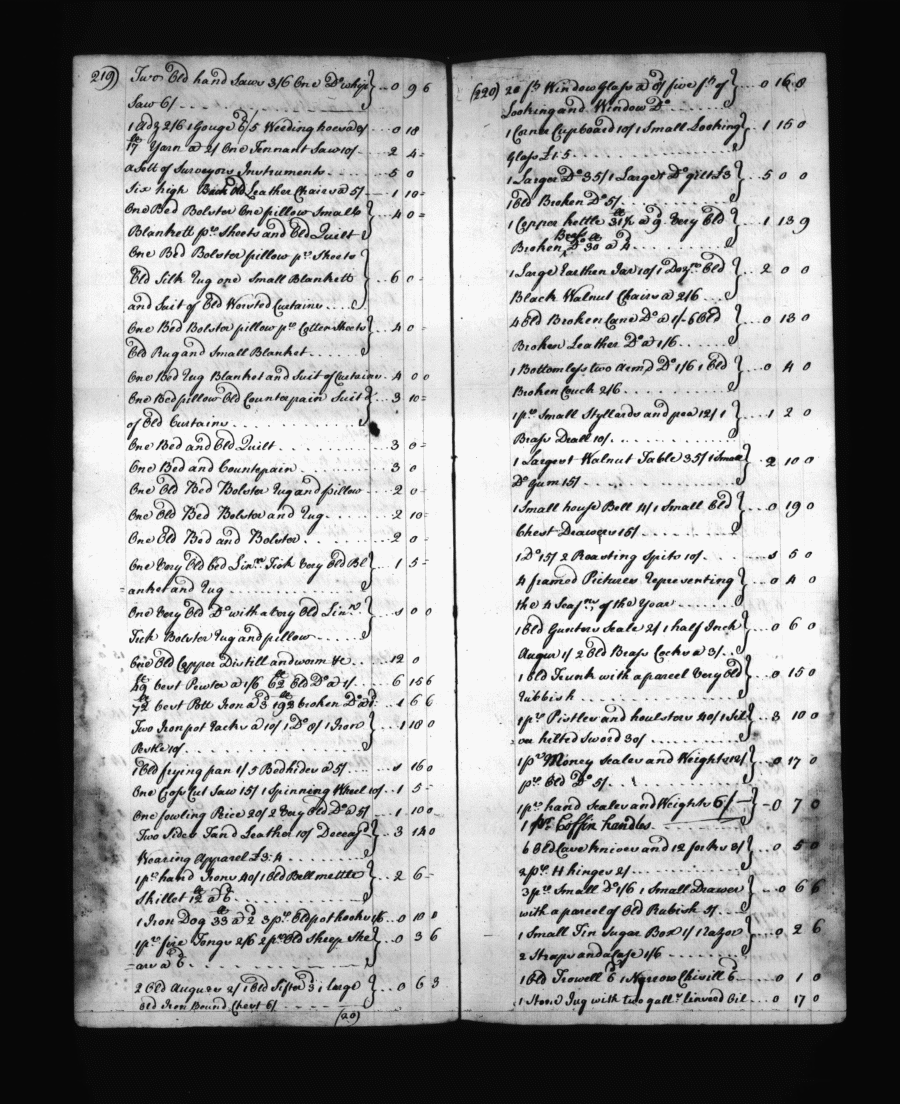 219) Two Old hand Saws 3/6 One Do whip } .. 0 9 6
Saw 6/
1 Adz 2/6 1 Gouge 6/ 5 Weeding hoes a 0 18
17 Yarn a 2/ One Tennant Saw 10/ .. 2 4 =
a Sett of Surveyors Instruments .. 5 0
Six high Back Old Leather Chairs a 5/ .. 1 10 =
One Bed Bolster One pillow Small } .. 4 0 =
Blankett pr Sheets and Old Quilt
One Bed Bolster pillow pr Sheets
Old Silk Rug one Small Blankett } .. 6 0 =
and Suit of Old Worsted Curtains
One Bed Bolster pillow pr Cotten Sheets } .. 4 0 =
Old Rug and Small Blanket
One Bed Rug Blanket and Suit of Curtains .. 4 0 0
One Bed pillow Old Counterpain Suit } .. 3 10 =
of Old Curtains
One Bed and Old Quilt .. 3 0 =
One Bed and Counterpain .. 3 0
One Old Bed Bolster Rug and pillow .. 2 0 =
One Old Bed Bolster and Rug .. 2 10 =
One Old Bed and Bolster .. 2 0 =
One Very Old bed Linn Tick Very Old Bl } 1 5 =
= anket and Rug
One Very Old Do with a Very Old Linn } 0 0
Tick Bolster Rug and pillow
One Old Copper Distill and worm &c .. 12 0
49 best Pewter a 1/6 62 Old Do a 1/ .. 6 15 6
72 best Pott Iron a 3 192 broken Do a 1 .. 1 6 6
Two Iron pot Racks a 10/ 1 Do 8/ 1 Iron } .. 1 18 0
Pestle 10/
1 Old frying pan 1/ 3 Bedhides a 5/ .. 16 0
One Cross Cut Saw 15/ 1 Spinning Wheel 10/ .. 1 5 =
One fowling Peice 20/ 2 Very Old Do a 5/ .. 1 10 0
Two Sides Tand Leather 10/ Deceasd } 3 14 0
Wearing Apparel £3:4
1 pr hand Irons 40/ 1 Old Bell mettle } .. 2 6 =
Skillet 12 a 6
1 Iron Dog 33 a 2 3 pr Old pot hooks 1/6 .. 0 10 0
1 pr fire Tongs 2/6 2 pr Old Sheep She } .. 0 3 6
= ars a 6
2 Old Augurs 2/ 1 Old Sifter 3 1 large } .. 0 6 3
Old Iron Bound Chest 6/
(20)
(220) 20 ft Window Glass a 8/ five ft of } .. 0 16 8
Looking and Window Do
1 Corner Cupboard 10/ 1 Small Looking } .. 1 15 0
Glass £1.5
1 Larger Do 35/ 1 Larger Do gilt £3 } 5 0 0
1 Old Broken Do 5/
1 Copper kettle 31½ a 9 Very Old } .. 1 13 9
Broken Brass Do 30 a 4
1 Large Earthen Jar 10/ 1 Dozn Old } .. 2 0 0
Black Walnut Chairs a 2/6
4 Old Broken Cane Do a 1/ 6 Old } .. 0 13 0
Broken Leather Do a 1/6
1 Bottomless two Armd Do 1/6 1 Old } .. 0 4 0
Broken Couch 2/6
1 pr Small Styllerds and pea 12/ 1 } .. 1 2 0
Brass Drall 10/
1 Largest Walnut Table 35/ 1 Small } 2 10 0
Do Gum 15/
1 Small house Bell 4/ 1 Small Old } .. 0 19 0
Chest Drawers 15/
1 Do 15/ 2 Roasting Spits 10/ .. 5 0
4 framed Pictures Representing } .. 0 4 0
the 4 Seasns of the Year
1 Old Gunters Scale 2/ 1 half Inch } .. 0 6 0
Augur 1/ 2 Old Brass Cocks a 3/
1 Old Trunk with a parcel Very Old } .. 0 15 0
Rubbish
1 pr Pistles and houlsters 40/ 1 Sil } 3 10 0
= ver hilted Sword 30/
1 pr Money Scales and Weights 12/ } .. 0 17 0
1 pr Old Do 5/
1 pr hand Scales and Weights 6/ } 0 7 0
1 pr Coffin handles
6 Old Case Knives and 12 forks 3/ } .. 0 5 0
2 pr H hinges 2/
3 pr Small Do 1/6 1 Small Drawer } .. 0 6 6
with a parcel of Old Rubish 5/
1 Small Tin Sugar Box 1/ 1 Razor } .. 0 2 6
2 Straps and a Case 1/6
1 Old Trowell 6 1 Narrow Chisill 6 .. 0 1 0
1 Stone Jug with two galls linseed Oil .. 0 17 0